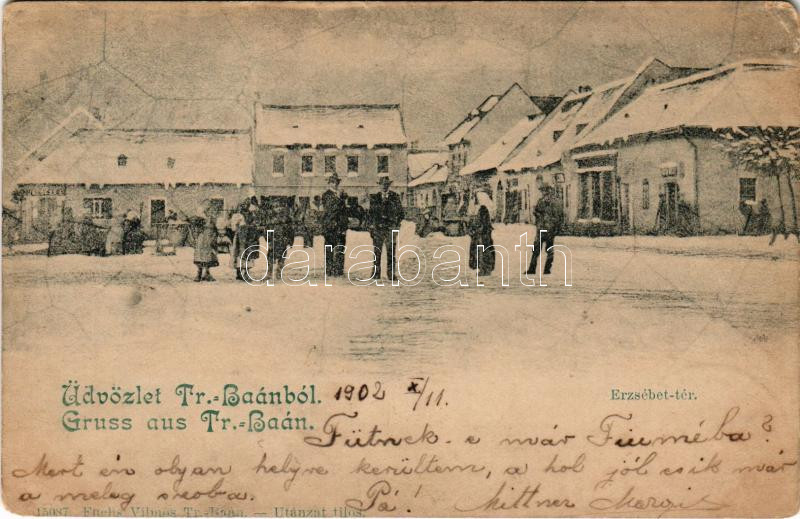 darabanth
Üdvözlet Tr.=Baánból. 1902 X/11. Erzsébet-tér.
Gruss aus Tr.=Baán.
Fütnek-e már Fiuméba?
Mert én olyan helyre kerültem, a hol jól esik már
a meleg szoba. Pá! Mittner Margit
15087. Fuchs Vilmos Tr.-Baán. — Utánzat tilos.